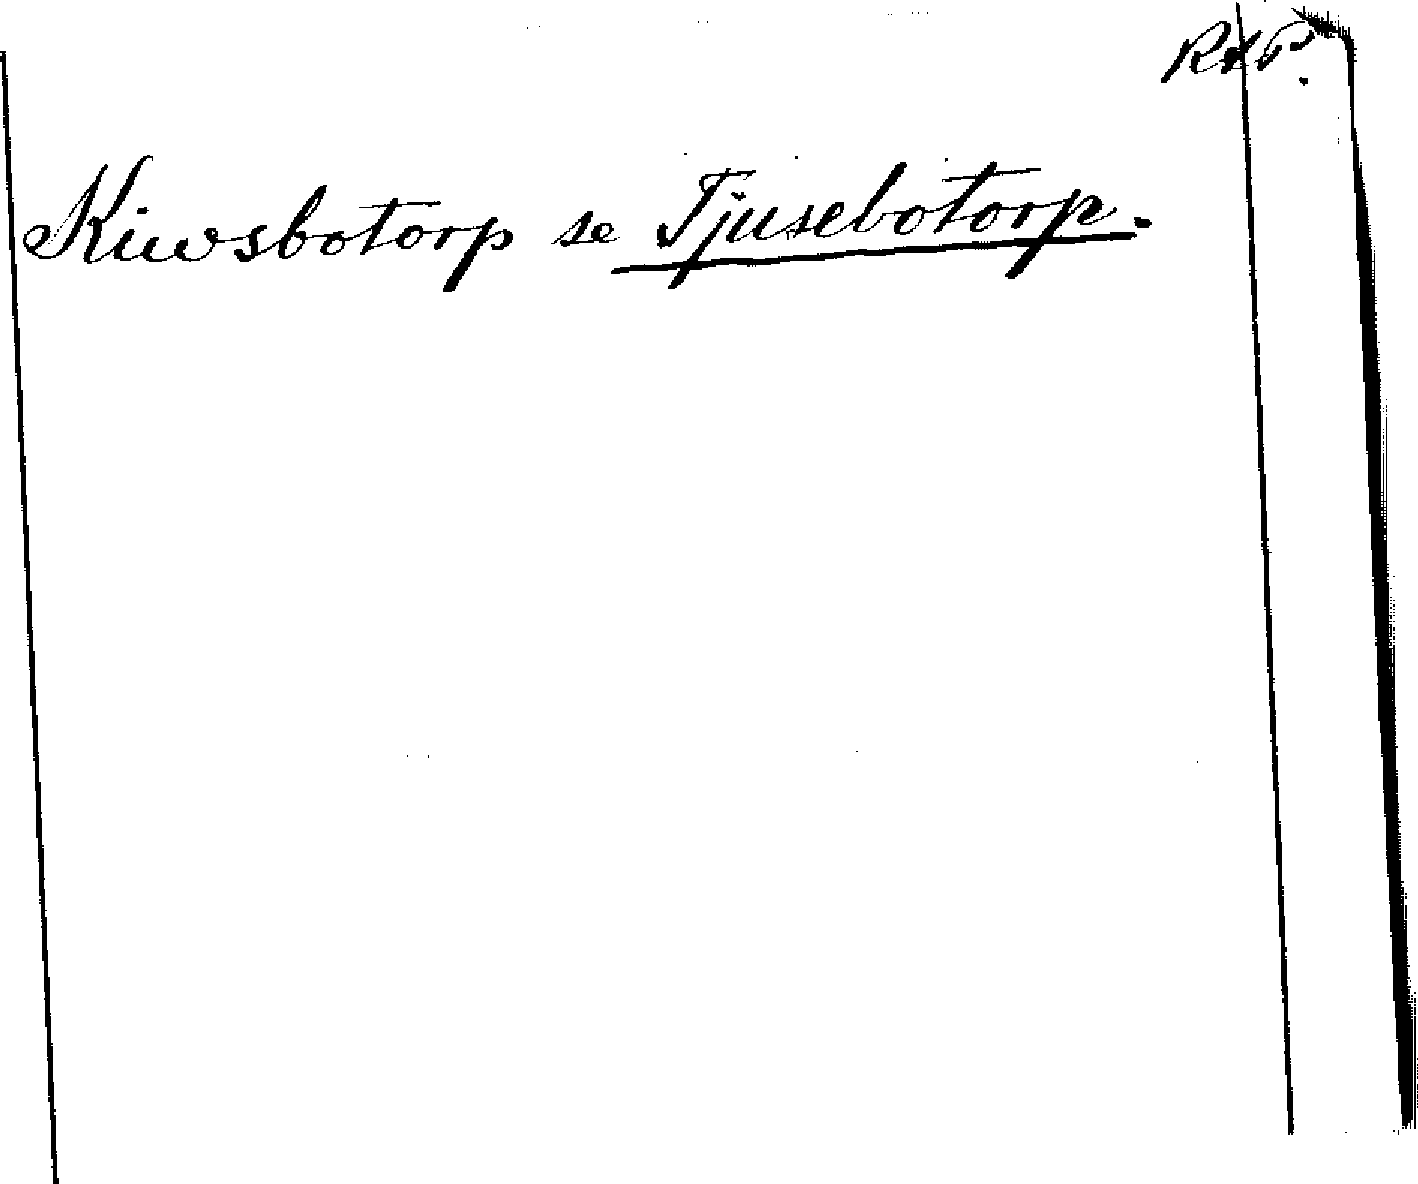 RAP.
Kiwsbotorp se Tjusebotorp.